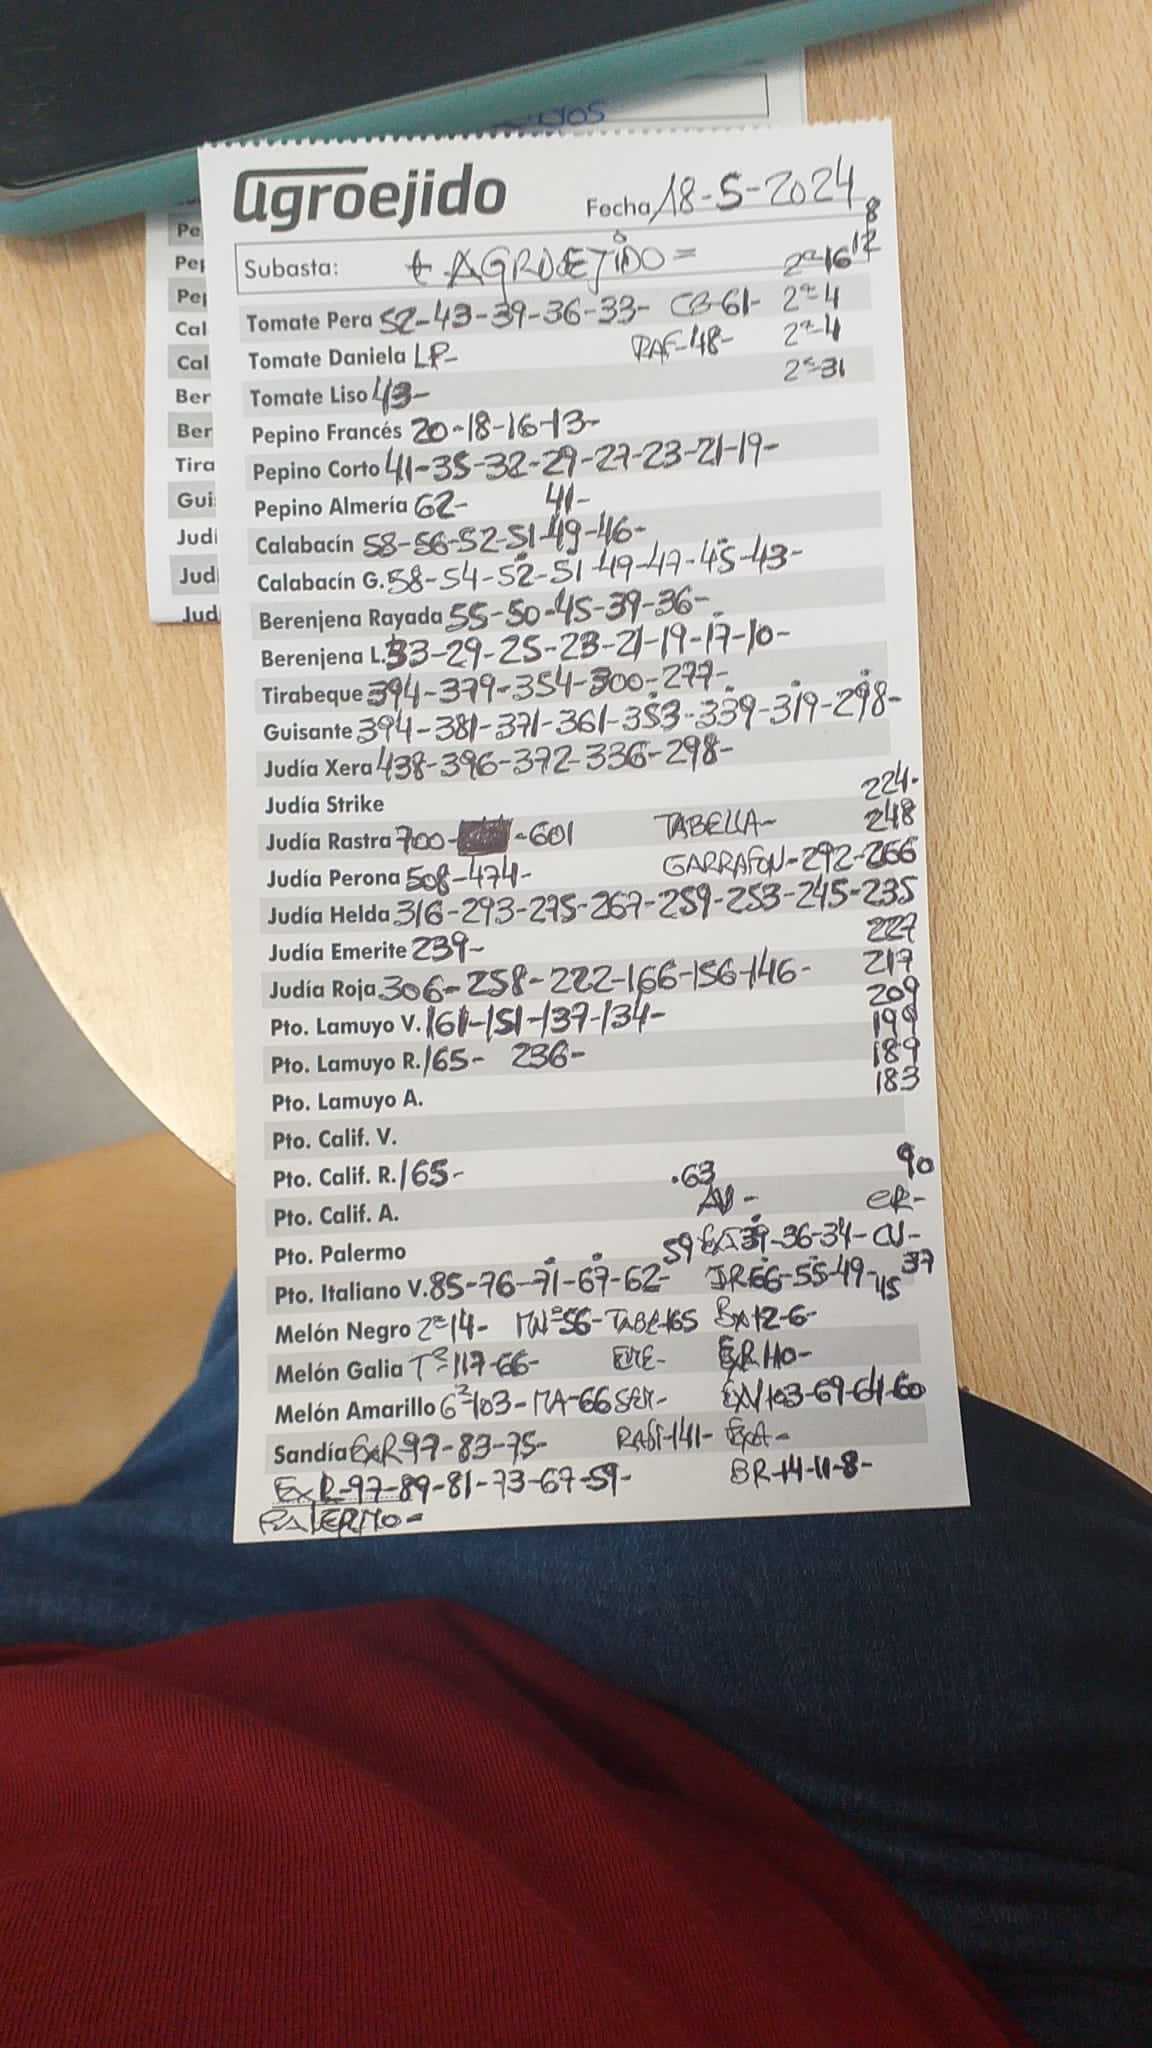 agroejido Fecha 18-5-2024
8
Subasta: + AGROEJIDO = 2ª-16 12
Tomate Pera 52-43-39-36-33- CB-61- 2ª-4
Tomate Daniela LP- RAF-48- 2ª-4
Tomate Liso 43- 2ª-31
Pepino Francés 20-18-16-13-
Pepino Corto 41-35-32-29-27-23-21-19-
Pepino Almería 62- 41-
Calabacín 58-56-52-51-49-46-
Calabacín G. 58-54-52-51-49-47-45-43-
Berenjena Rayada 55-50-45-39-36-
Berenjena L. 33-29-25-23-21-19-17-10-
Tirabeque 394-379-354-300-277-
Guisante 394-381-371-361-353-339-319-298-
Judía Xera 438-396-372-336-298-
Judía Strike 224-
Judía Rastra 700- -601 TABELLA- 248
Judía Perona 508-474- GARRAFON-292-266
Judía Helda 316-293-275-267-259-253-245-235
Judía Emerite 239- 227
Judía Roja 306-258-222-166-156-146- 217
209
Pto. Lamuyo V. 161-151-137-134- 199
Pto. Lamuyo R. 165- 236- 189
Pto. Lamuyo A. 183
Pto. Calif. V.
Pto. Calif. R. 165- 63 90
Pto. Calif. A. AV- CR-
Pto. Palermo 59 39-36-34- CV-
Pto. Italiano V. 85-76-71-67-62- 66-55-49-45 37
Melón Negro 2ª-14- 56- TABE-165 BX12-6-
Melón Galia 117-66- EXR 110-
Melón Amarillo 103- MA-66 EXV103-69-64-60
Sandía EXR-97-83-75- 141-
EXR-97-89-81-73-67-59- BR-14-11-8-
PALERMO-
Pe
Pep
Pep
Cal
Cal
Ber
Ber
Tira
Guis
Judí
Jud
Jud